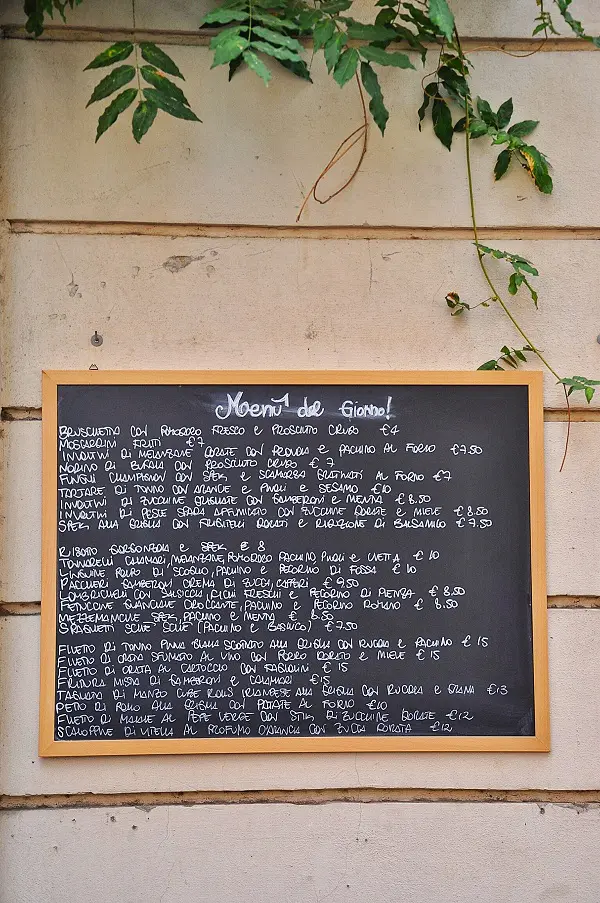 Menù del Giorno!
BRUSCHETTA CON POMODORO FRESCO E PROSCIUTTO CRUDO €4
MOSCARDINI FRITTI €7
INVOLTINI DI MELANZANE DORATE CON PROVOLA E PACHINO AL FORNO €7.50
NODINO DI BUFALA CON PROSCIUTTO CRUDO € 7
FUNGHI CHAMPIGNON CON SPEK E SCAMORZA GRATINATI AL FORNO €7
TARTARE DI TONNO CON ARANCE E PINOLI E SESAMO €10
INVOLTINI DI ZUCCHINE GRIGLIATE CON GAMBERONI E MENTA € 8.50
INVOLTINI DI PESCE SPADA AFFUMICATO CON ZUCCHINE DORATE E MIELE € 8.50
SPEK ALLA GRIGLIA CON FRIGITELLI DORATI E RIDUZIONE DI BALSAMICO €7.50
RISOTTO GORGONZOLA E SPEK € 8
TONNARELLI CALAMARI, MELANZANE, POMODORO PACHINO, PINOLI E UVETTA € 10
LINGUINE POLPO DI SCOGLIO, PACHINO E PECORINO DI FOSSA € 10
PACCHERI GAMBERONI CREMA DI ZUCCA, CAPPERI € 9.50
LOMBRICHELLI CON SALSICCIA, FICHI FRESCHI E PECORINO DI PIENZA € 8.50
FETUCCINE GUANCIALE CROCCANTE, PACHINO E PECORINO ROMANO € 8.50
MEZZEMANICHE SPEK, PACHINO E MENTA € 8.50
SPAGHETTI SCIUE' SCIUE' (PACHINO E BASILICO) €7.50
FILETTO DI TONNO PINNA GIALLA SCOTTATO ALLA GRIGLIA CON RUCOLA E PACHINO € 15
FILETTO DI ORATA SFUMATO AL VINO CON PORRO DORATO E MIELE € 15
FILETTO DI ORATA AL CARTOCCIO CON FAGIOLINI € 15
FRITTURA MISTA DI GAMBERONI E CALAMARI €15
TAGLIATA DI MANZO CUBE ROLL IRLANDESE ALLA GRIGLIA CON RUCOLA E GRANA €13
PETTO DI POLLO ALLA GRIGLIA CON PATATE AL FORNO €10
FILETTO DI MAIALE AL PEPE VERDE CON STIK DI ZUCCHINE DORATE €12
SCALOPPINE DI VITELLA AL PROFUMO D'ARANCIA CON ZUCCA DORATA €12